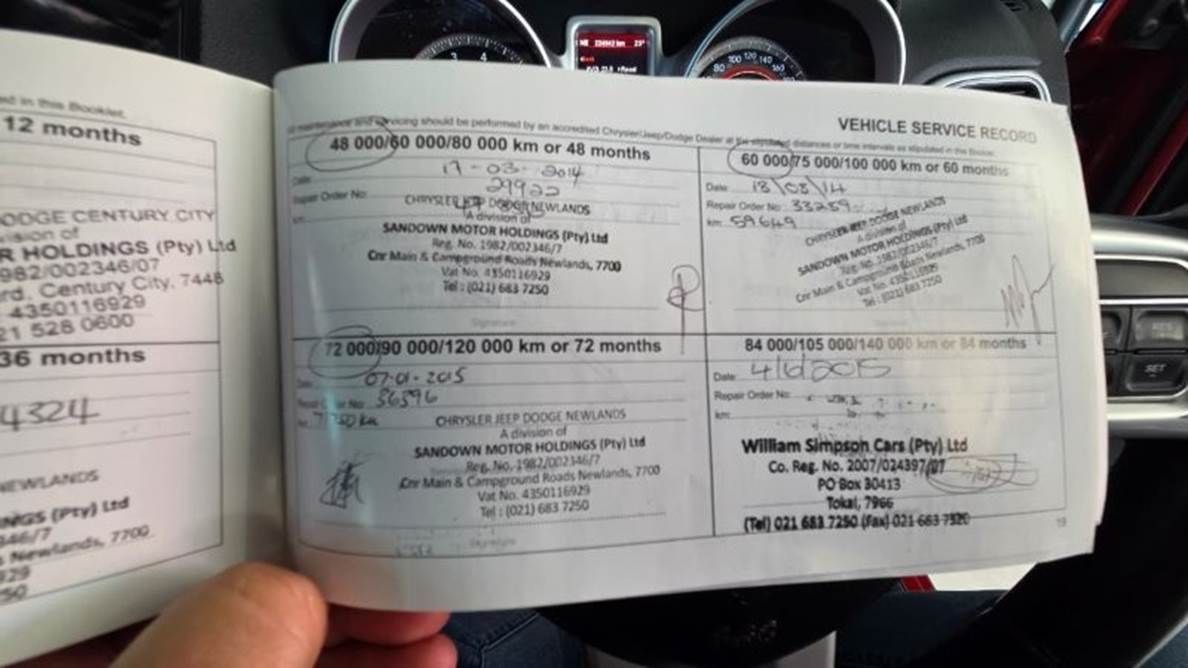 ed in this Booklet.
12 months
ODGE CENTURY CITY
ision of
R HOLDINGS (Pty) Ltd
982/002346/07
rd, Century City, 7446
4350116929
21 528 0600
36 months
4324
NEWLANDS
NGS (Pty) Ltd
346/7
Newlands, 7700
929
50
VEHICLE SERVICE RECORD
maintenance and servicing should be performed by an accredited Chrysler/Jeep/Dodge Dealer at the stipulated distances or time intervals as stipulated in this Booklet.
48 000/60 000/80 000 km or 48 months
Date: 17-03-2014
Repair Order No: 29922
km:
CHRYSLER JEEP DODGE NEWLANDS
A division of
SANDOWN MOTOR HOLDINGS (Pty) Ltd
Reg. No. 1982/002346/7
Cnr Main & Campground Roads Newlands, 7700
Vat No. 4350116929
Tel : (021) 683 7250
Signature
60 000/75 000/100 000 km or 60 months
Date: 18/08/14
Repair Order No: 33259
km: 59649
CHRYSLER JEEP DODGE NEWLANDS
A division of
SANDOWN MOTOR HOLDINGS (Pty) Ltd
Reg. No. 1982/002346/7
Cnr Main & Campground Roads Newlands, 7700
Vat No. 4350116929
Tel : (021) 683 7250
72 000/90 000/120 000 km or 72 months
Date: 07-01-2015
Repair Order No: 36396
km
CHRYSLER JEEP DODGE NEWLANDS
A division of
SANDOWN MOTOR HOLDINGS (Pty) Ltd
Reg. No. 1982/002346/7
Cnr Main & Campground Roads Newlands, 7700
Vat No. 4350116929
Tel : (021) 683 7250
Signature
84 000/105 000/140 000 km or 84 months
Date: 4/6/2015
Repair Order No:
km:
William Simpson Cars (Pty) Ltd
Co. Reg. No. 2007/024397/07
PO Box 30413
Tokai, 7966
(Tel) 021 683 7250 (Fax) 021 683 7520
19
3 4
80 100 120 140 160
SET